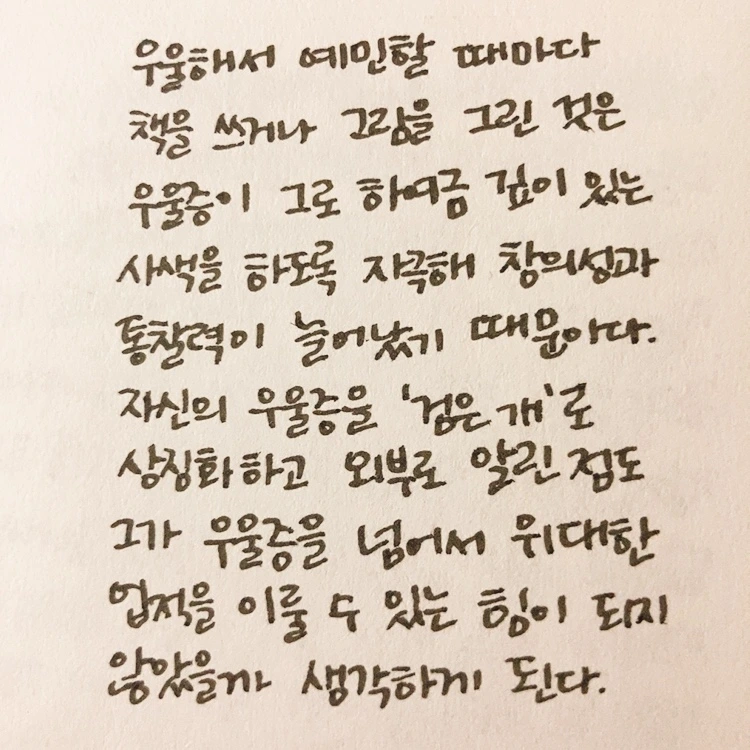 우울해서 예민할 때마다
책을 쓰거나 그림을 그린 것은
우울증이 그로 하여금 깊이 있는
사색을 하도록 자극해 창의성과
통찰력이 늘어났기 때문이다.
자신의 우울증을 '검은 개'로
상징화하고 외부로 알린 점도
그가 우울증을 넘어서 위대한
업적을 이룰 수 있는 힘이 되지
않았을까 생각하게 된다.